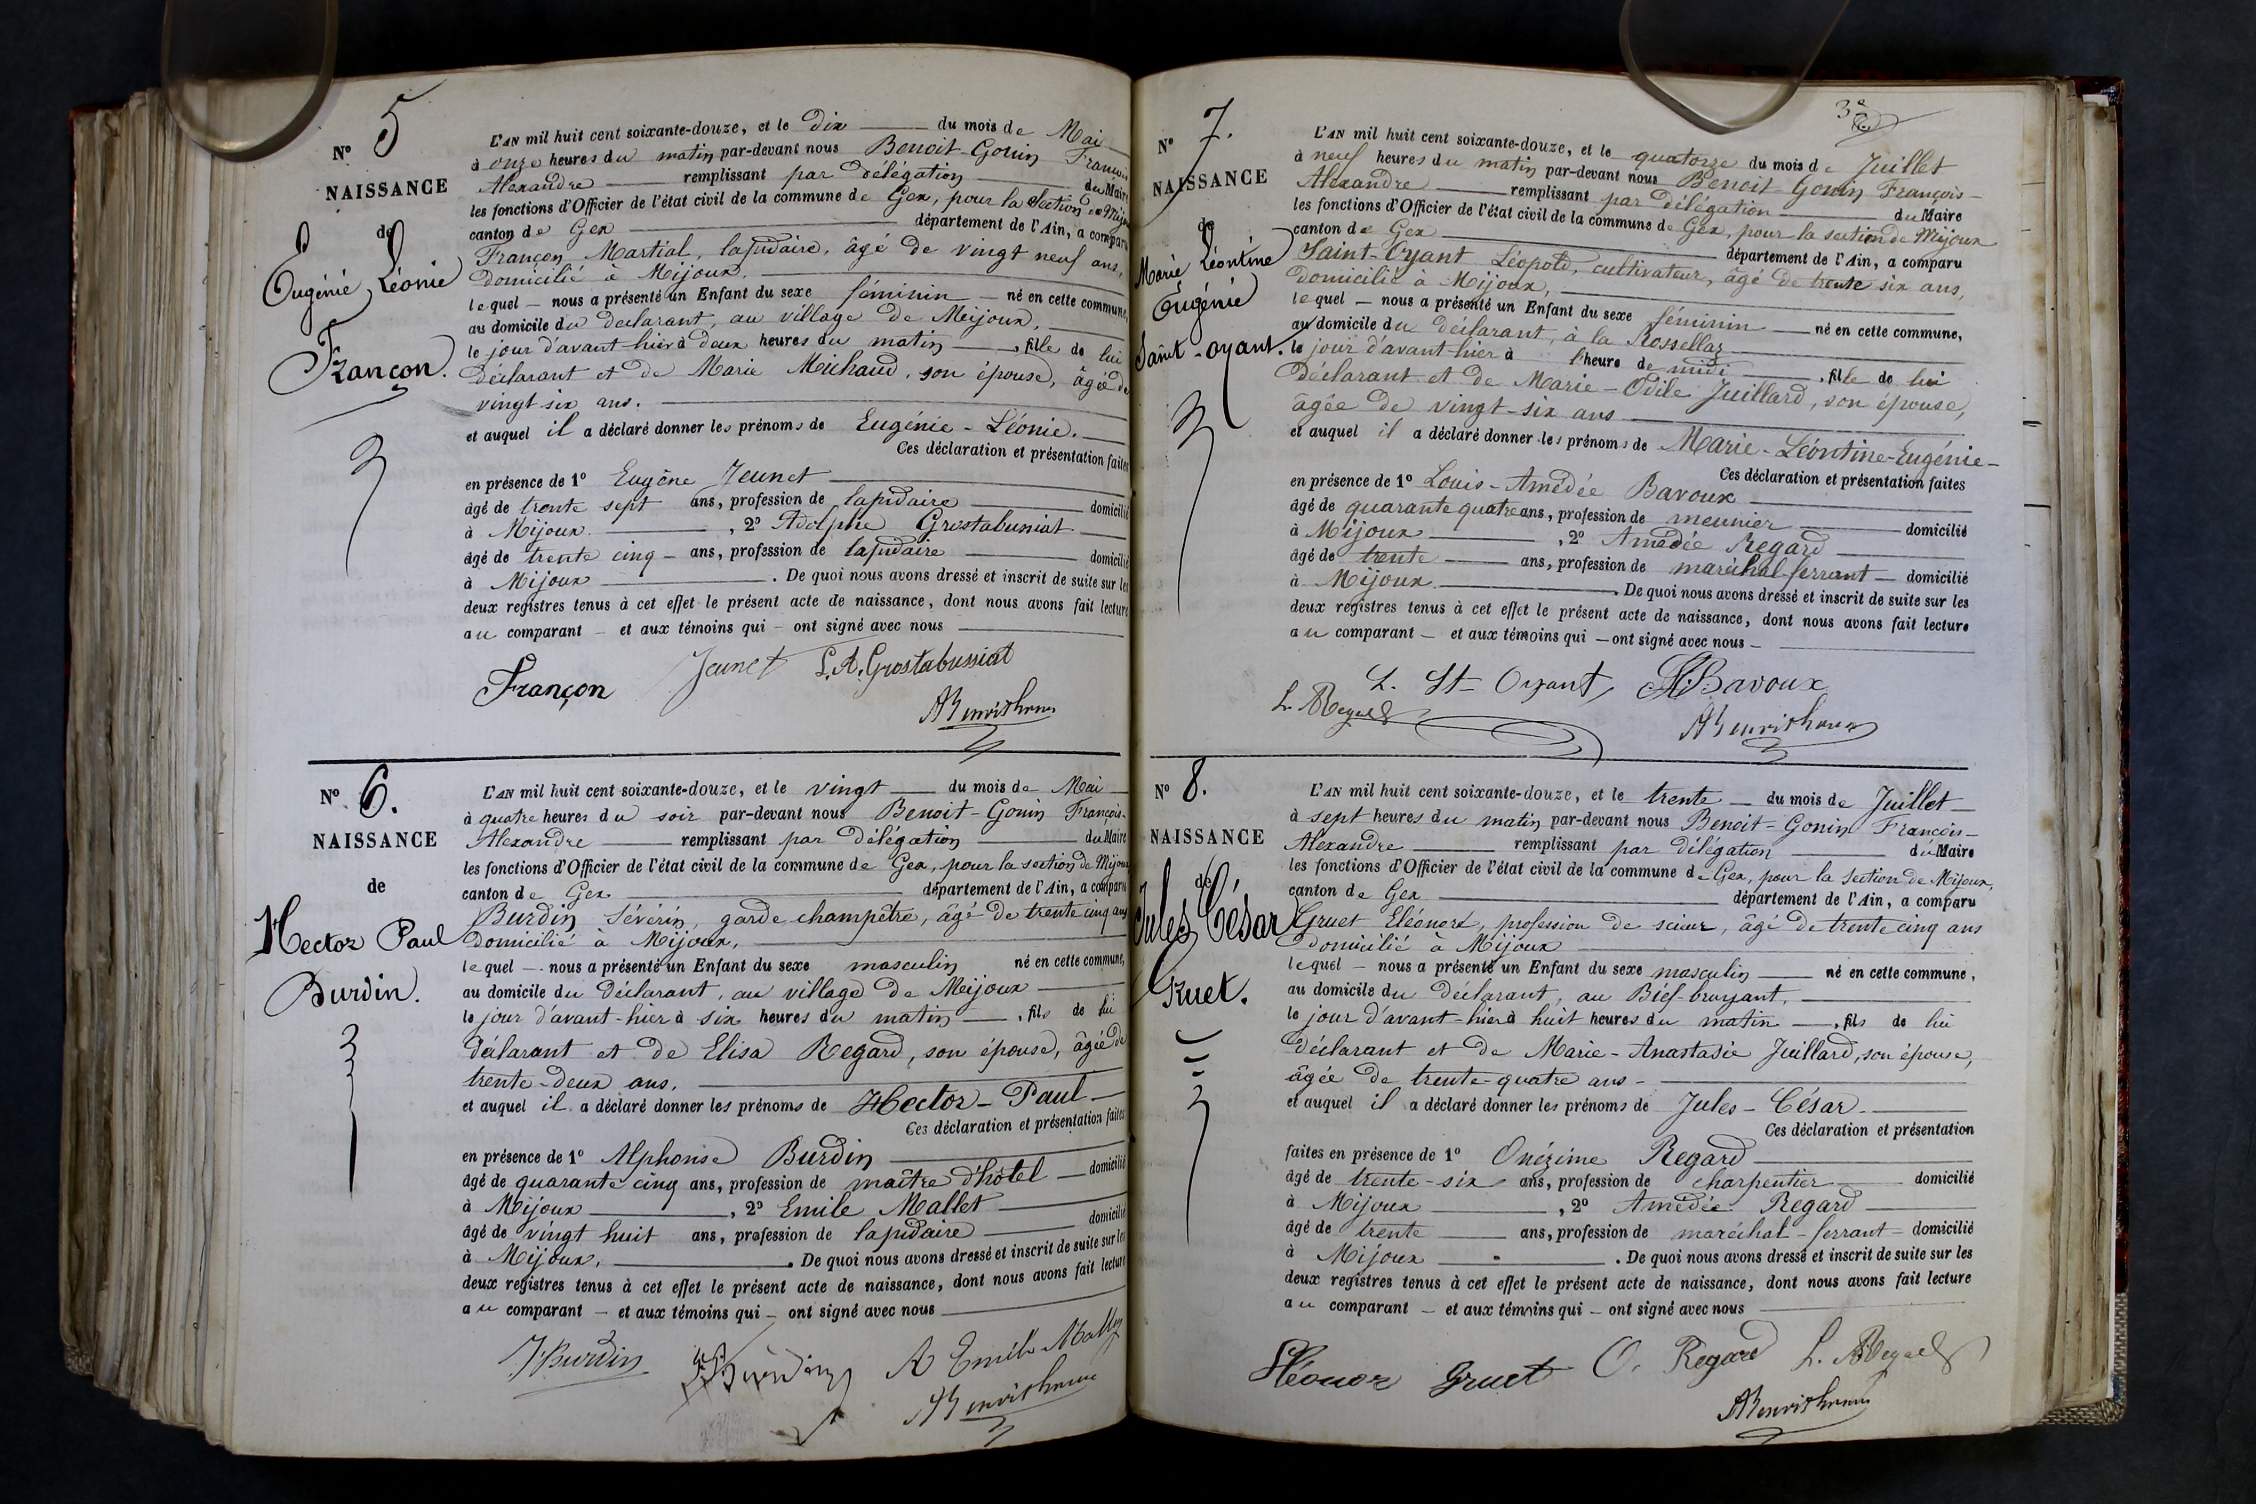 Nº 5
NAISSANCE
de
Eugénie Léonie
Françon.
L'AN mil huit cent soixante-douze, et le dix du mois de Mai
à onze heures du matin par-devant nous Benoit-Gonin François
Alexandre remplissant par délégation du Maire
les fonctions d'Officier de l'état civil de la commune de Gex, pour la Section de Mijoux
canton de Gex département de l'Ain, a comparu
Françon Martial, lapidaire, âgé de vingt neuf ans,
domicilié à Mijoux.
lequel nous a présenté un Enfant du sexe féminin né en cette commune,
au domicile du déclarant, au village de Meijoux,
le jour d'avant-hier à deux heures du matin, fille de lui
déclarant et de Marie Michaud, son épouse, âgée de
vingt-six ans.
et auquel il a déclaré donner les prénoms de Eugénie-Léonie.
Ces déclaration et présentation faites
en présence de 1º Eugène Jeunet
âgé de trente sept ans, profession de lapidaire domicilié
à Mijoux, 2º Adolphe Grostabussiat
âgé de trente cinq ans, profession de lapidaire domicilié
à Mijoux. De quoi nous avons dressé et inscrit de suite sur les
deux registres tenus à cet effet le présent acte de naissance, dont nous avons fait lecture
au comparant et aux témoins qui ont signé avec nous
Françon Jeunet L.A. Grostabussiat
Nº 6.
NAISSANCE
de
Hector Paul
Burdin.
L'AN mil huit cent soixante-douze, et le vingt du mois de Mai
à quatre heures du soir par-devant nous Benoit-Gonin François-
Alexandre remplissant par délégation du Maire
les fonctions d'Officier de l'état civil de la commune de Gex, pour la section de Mijoux
canton de Gex département de l'Ain, a comparu
Burdin Sévérin, garde champêtre, âgé de trente cinq ans
domicilié à Mijoux,
lequel nous a présenté un Enfant du sexe masculin né en cette commune,
au domicile du déclarant, au village de Meijoux
le jour d'avant-hier à six heures du matin, fils de lui
déclarant et de Elisa Regard, son épouse, âgée de
trente-deux ans.
et auquel il a déclaré donner les prénoms de Hector-Paul
Ces déclaration et présentation faites
en présence de 1º Alphonse Burdin
âgé de quarante cinq ans, profession de maître d'hôtel domicilié
à Mijoux, 2º Emile Mallet
âgé de vingt huit ans, profession de lapidaire domicilié
à Mijoux. De quoi nous avons dressé et inscrit de suite sur les
deux registres tenus à cet effet le présent acte de naissance, dont nous avons fait lecture
au comparant et aux témoins qui ont signé avec nous
Burdin Emile Mallet
Nº 7.
NAISSANCE
de
Marie Léontine
Eugénie
Saint-oyant.
L'AN mil huit cent soixante-douze, et le quatorze du mois de Juillet
à neuf heures du matin par-devant nous Benoit-Gonin François-
Alexandre remplissant par délégation du Maire
les fonctions d'Officier de l'état civil de la commune de Gex, pour la section de Mijoux
canton de Gex département de l'Ain, a comparu
Saint-Oyant Léopold, cultivateur, âgé de trente six ans,
domicilié à Mijoux,
lequel nous a présenté un Enfant du sexe féminin né en cette commune,
au domicile du déclarant, à la Rossellaz
le jour d'avant-hier à l'heure de midi, fille de lui
déclarant et de Marie-Odile Juillard, son épouse,
âgée de vingt-six ans
et auquel il a déclaré donner les prénoms de Marie-Léontine-Eugénie-
Ces déclaration et présentation faites
en présence de 1º Louis-Amédée Bavoux
âgé de quarante quatre ans, profession de meunier domicilié
à Mijoux, 2º Amédée Regard
âgé de trente ans, profession de maréchal-ferrant domicilié
à Mijoux. De quoi nous avons dressé et inscrit de suite sur les
deux registres tenus à cet effet le présent acte de naissance, dont nous avons fait lecture
au comparant et aux témoins qui ont signé avec nous
L. St-Oyant Bavoux
Nº 8.
NAISSANCE
de
Jules César
Gruet.
L'AN mil huit cent soixante-douze, et le trente du mois de Juillet
à sept heures du matin par-devant nous Benoit-Gonin François-
Alexandre remplissant par délégation du Maire
les fonctions d'Officier de l'état civil de la commune de Gex, pour la section de Mijoux,
canton de Gex département de l'Ain, a comparu
Gruet Eléonore, profession de scieur, âgé de trente cinq ans
domicilié à Mijoux
lequel nous a présenté un Enfant du sexe masculin né en cette commune,
au domicile du déclarant, au Bief-bruyant,
le jour d'avant-hier à huit heures du matin, fils de lui
déclarant et de Marie-Anastasie Juillard, son épouse,
âgée de trente-quatre ans-
et auquel il a déclaré donner les prénoms de Jules-César.
Ces déclaration et présentation
faites en présence de 1º Onézime Regard
âgé de trente-six ans, profession de charpentier domicilié
à Mijoux, 2º Amédée Regard
âgé de trente ans, profession de maréchal-ferrant domicilié
à Mijoux. De quoi nous avons dressé et inscrit de suite sur les
deux registres tenus à cet effet le présent acte de naissance, dont nous avons fait lecture
au comparant et aux témoins qui ont signé avec nous
Eléonor Gruet O. Regard